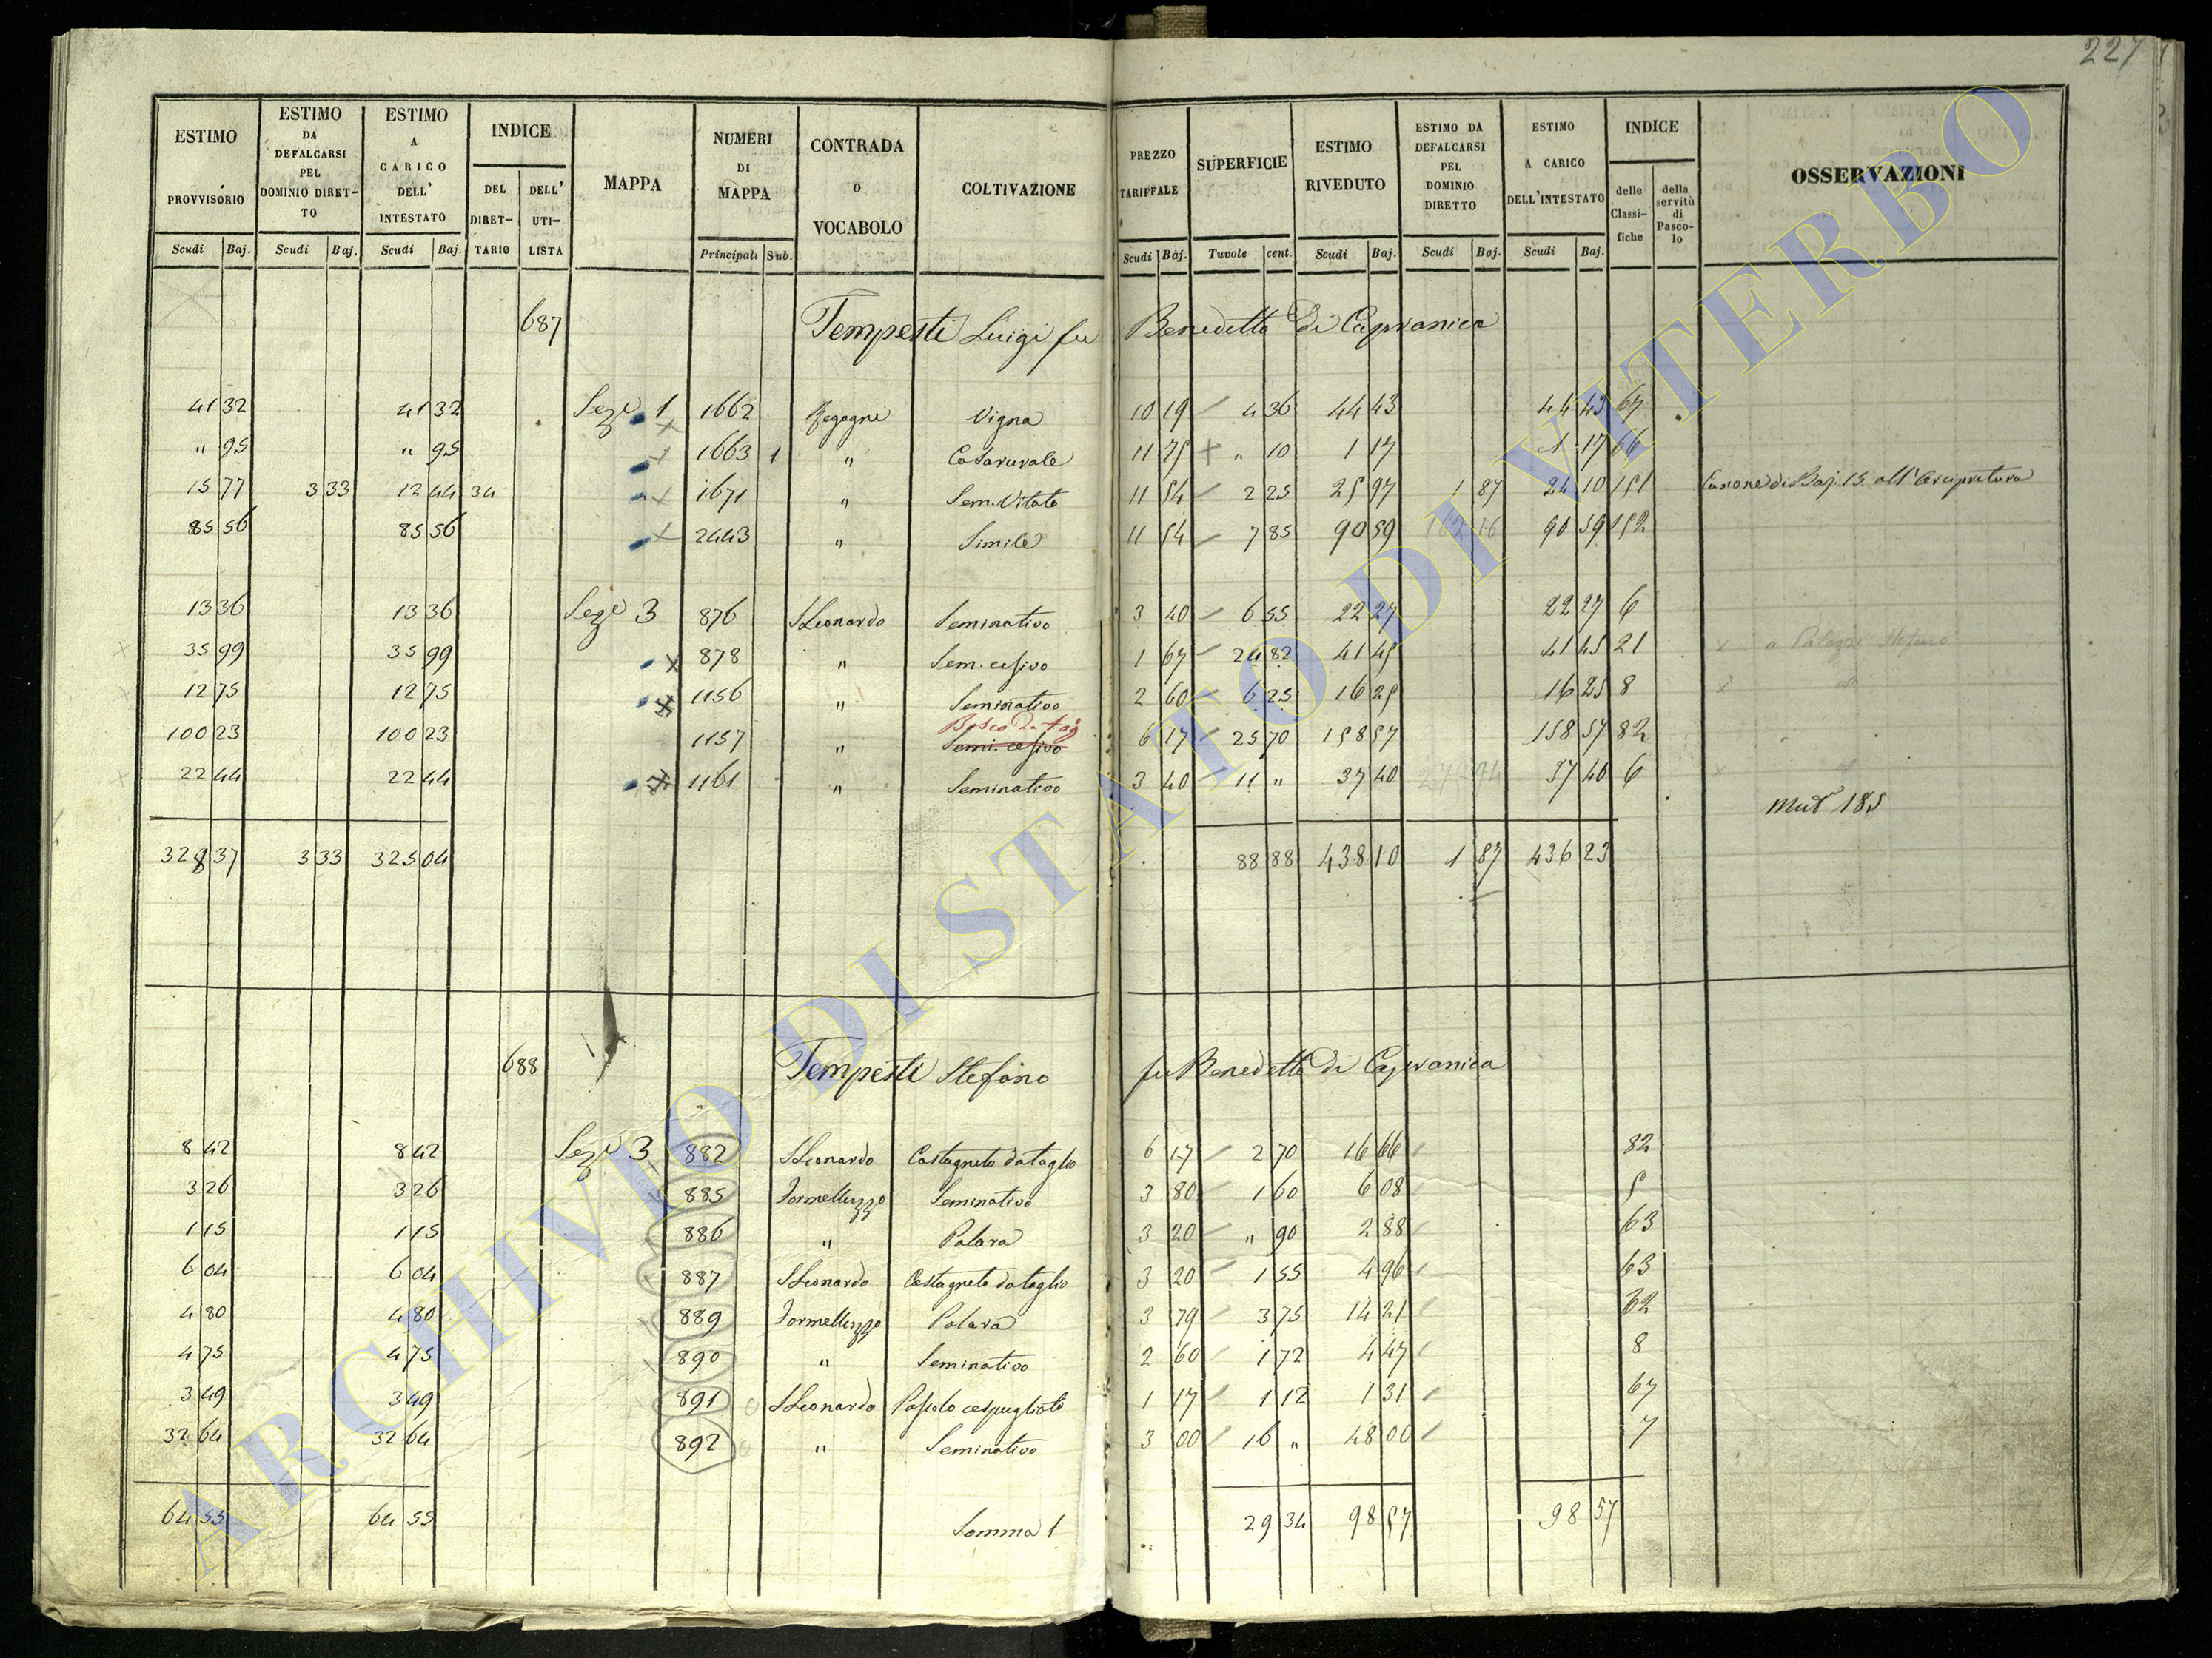 227
ESTIMO PROVVISORIO Scudi Baj.
ESTIMO DA DEFALCARSI PEL DOMINIO DIRETTO Scudi Baj.
ESTIMO A CARICO DELL' INTESTATO Scudi Baj.
INDICE DEL DIRETTARIO DELL' UTILISTA
MAPPA
NUMERI DI MAPPA Principali Sub.
CONTRADA O VOCABOLO
COLTIVAZIONE
PREZZO TARIFFALE Scudi Baj.
SUPERFICIE Tavole cent.
ESTIMO RIVEDUTO Scudi Baj.
ESTIMO DA DEFALCARSI PEL DOMINIO DIRETTO Scudi Baj.
ESTIMO A CARICO DELL'INTESTATO Scudi Baj.
INDICE delle Classifiche della servitù di Pascolo
OSSERVAZIONI
687 Tempesti Luigi fu Benedetto Di Capranica
41 32 41 32 Sez.e 1 1662 Vigna 10 19 4 36 44 43 44 43 67
" 95 " 95 1663 1 " Casarurale 11 75 " 10 1 17 1 17 66
15 77 3 33 12 44 34 1671 " Sem. Vitato 11 54 2 25 25 97 1 87 24 10 151 Canone di Baj. 15. all'Arcipretura
85 56 85 56 2443 " Simile 11 54 7 85 90 59 90 59 152
13 36 13 36 Sez.e 3 876 S Leonardo Seminativo 3 40 6 55 22 27 22 27 6
35 99 35 99 878 " Sem. cesivo 1 67 24 82 41 45 41 45 21
12 75 12 75 1156 " Seminativo 2 60 6 25 16 25 16 25 8
Bosco da tag.
100 23 100 23 1157 " Semi. cesivo 6 17 25 70 158 57 158 57 82
22 44 22 44 1161 " Seminativo 3 40 11 " 37 40 37 40 6
Mut 185
328 37 3 33 325 04 88 88 438 10 1 87 436 23
688 Tempesti Stefano fu Benedetto di Capranica
8 42 8 42 Sez.e 3 882 S Leonardo Castagneto dataglio 6 17 2 70 16 66 82
3 26 3 26 885 Formelluzzo Seminativo 3 80 1 60 6 08 5
1 15 1 15 886 " Palara 3 20 " 90 2 88 63
6 04 6 04 887 S Leonardo Castagneto dataglio 3 20 1 55 4 96 63
4 80 4 80 889 Formelluzzo Palara 3 79 3 75 14 21 62
4 75 4 75 890 " Seminativo 2 60 1 72 4 47 8
3 49 3 49 891 S Leonardo Pascolo cespugliato 1 17 1 12 1 31 67
32 64 32 64 892 " Seminativo 3 00 16 " 48 00 7
64 55 64 55 Somma 1 29 34 98 57 98 57
ARCHIVIO DI STATO DI VITERBO